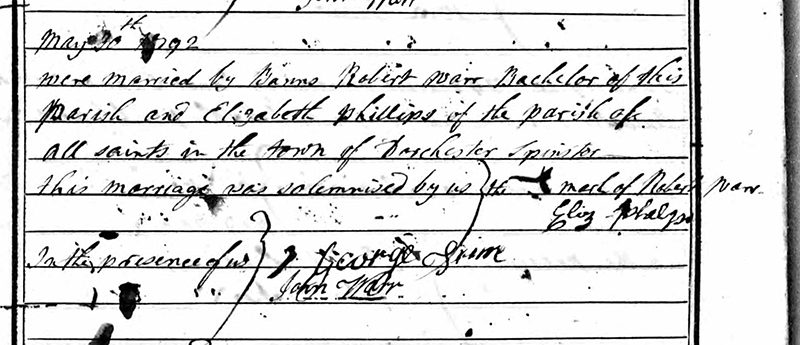 May 30th 1792
were married by Banns Robert Warr Bachelor of this
Parish and Elizabeth Phillips of the parish of
all saints in the town of Dorchester Spinster
this marriage was solemnised by us the mark of Robert Warr
Eliz Phelps
In the presence of us George
John Warr